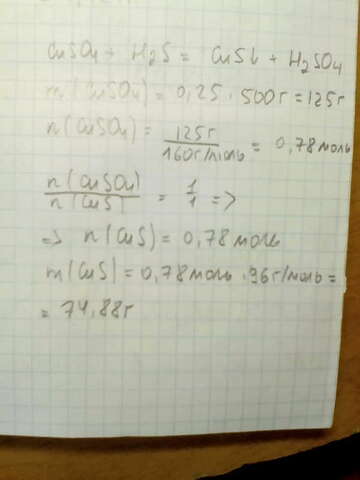 CuSO4 + H2S = CuS↓ + H2SO4
m(CuSO4) = 0,25 · 500г = 125г
n(CuSO4) = 125г / 160г/моль = 0,78 моль
n(CuSO4) / n(CuS) = 1/1 =>
=> n(CuS) = 0,78 моль
m(CuS) = 0,78 моль · 96 г/моль =
= 74,88г